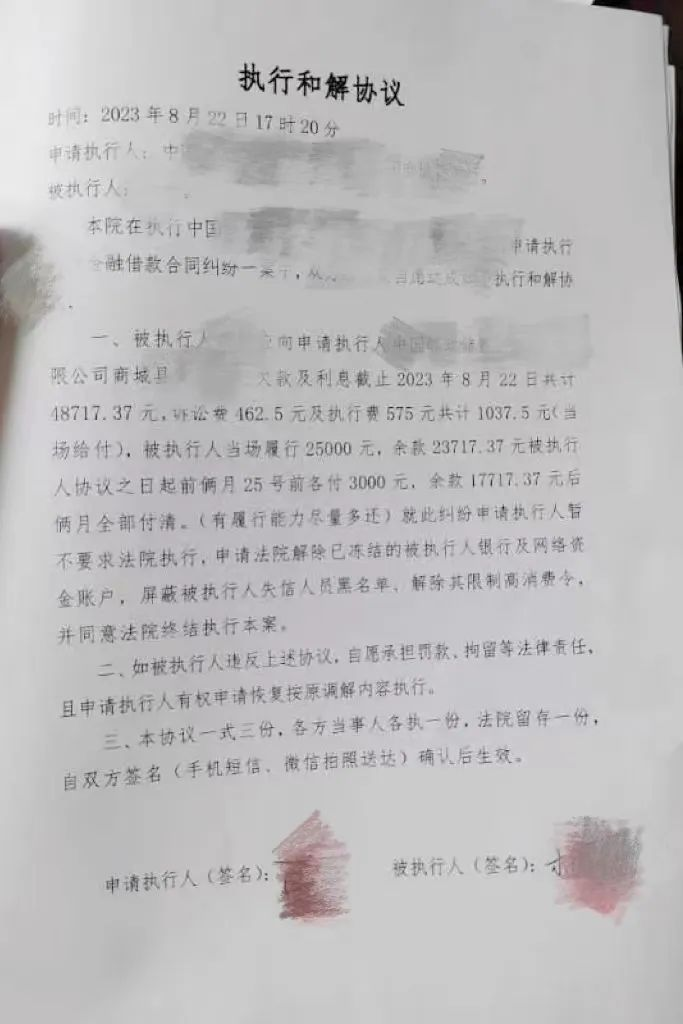 执行和解协议
时间：2023年8月22日17时20分
申请执行人：中
被执行人：
本院在执行中国 申请执行
融借款合同纠纷一案中， 执行和解协
一、被执行人 应向申请执行人中国
限公司商城县 欠款及利息截止2023年8月22日共计
48717.37元，诉讼费462.5元及执行费575元共计1037.5元（当
场给付），被执行人当场履行25000元，余款23717.37元被执行
人协议之日起前俩月25号前各付3000元，余款17717.37元后
俩月全部付清。（有履行能力尽量多还）就此纠纷申请执行人暂
不要求法院执行，申请法院解除已冻结的被执行人银行及网络资
金账户，屏蔽被执行人失信人员黑名单、解除其限制高消费令，
并同意法院终结执行本案。
二、如被执行人违反上述协议，自愿承担罚款、拘留等法律责任，
且申请执行人有权申请恢复按原调解内容执行。
三、本协议一式三份，各方当事人各执一份，法院留存一份，
自双方签名（手机短信、微信拍照送达）确认后生效。
申请执行人（签名）： 被执行人（签名）：